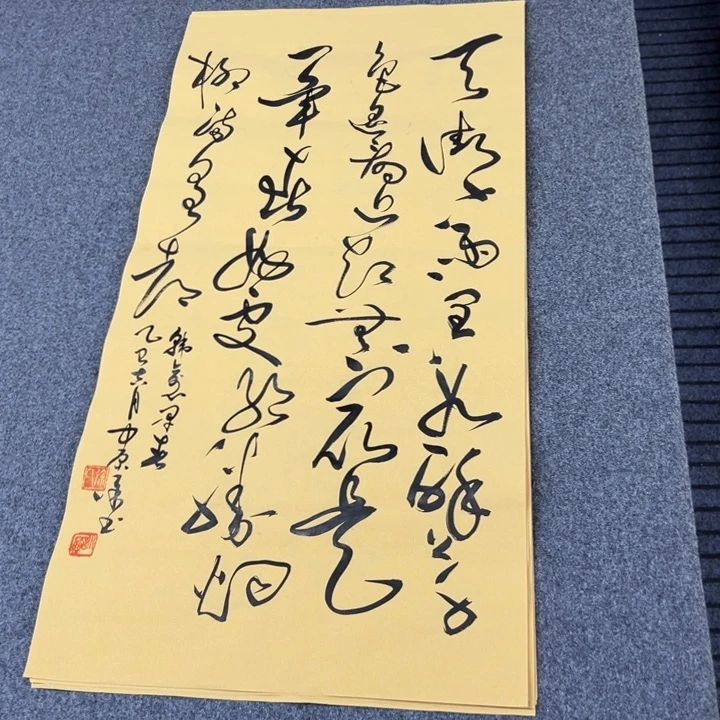 天街小雨润如酥草
色遥看近却无最是
一年春好处绝胜烟
柳满皇都
韩愈早春
乙巳六月中原书